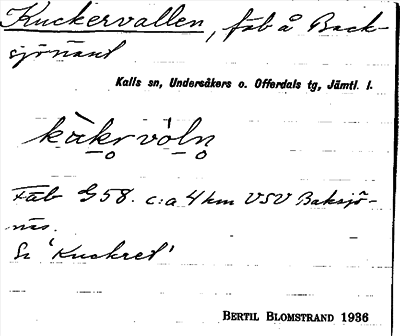 Kuckervallen, fäb å Back-
sjönäset
Kalls sn, Undersåkers o. Offerdals tg, Jämtl. l.
kàkr vòln
Fäb G58. c:a 4 km VSV Baksjö-
näs.
Se 'Kuckret'
BERTIL BLOMSTRAND 1936